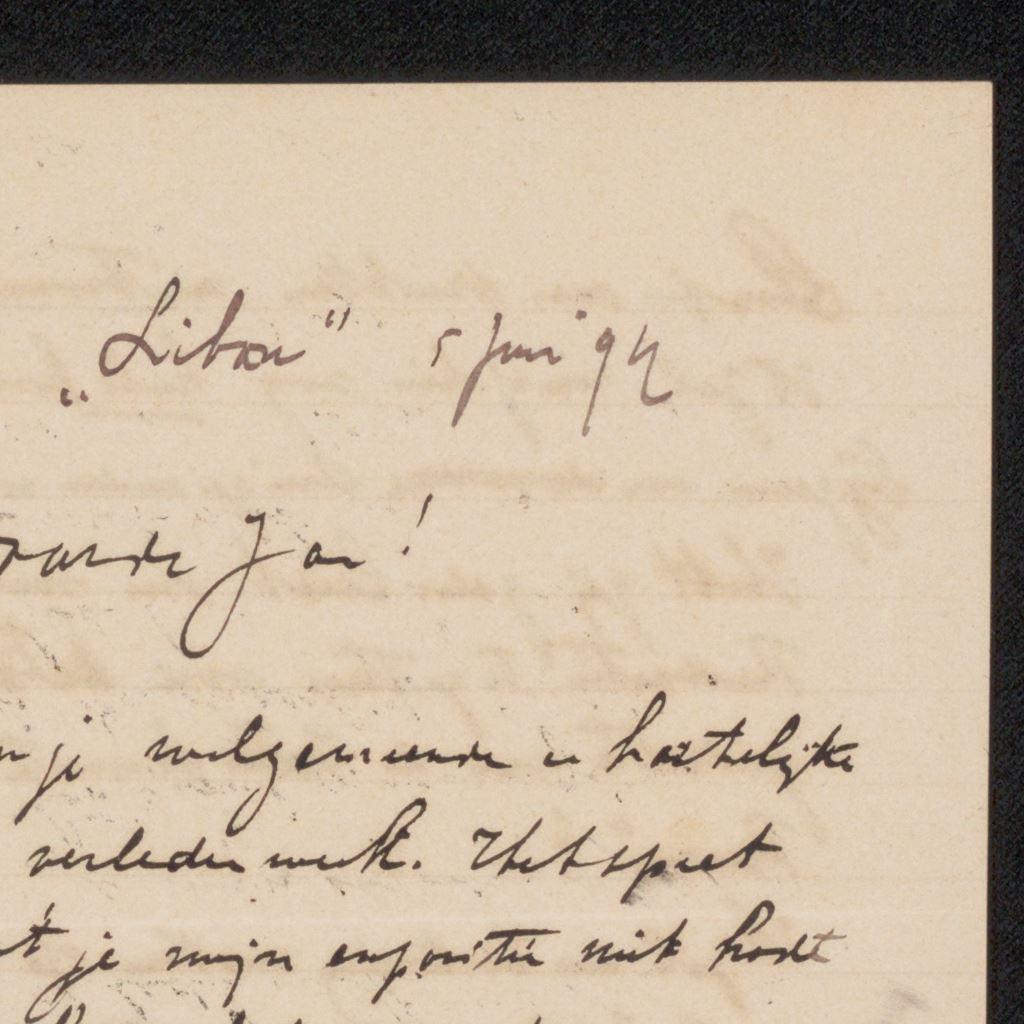 „Libau" 5 Juni 94
Jan!
je welgemeende en hartelijke
verleden week. Het speet
je mijn expositie niet hadt